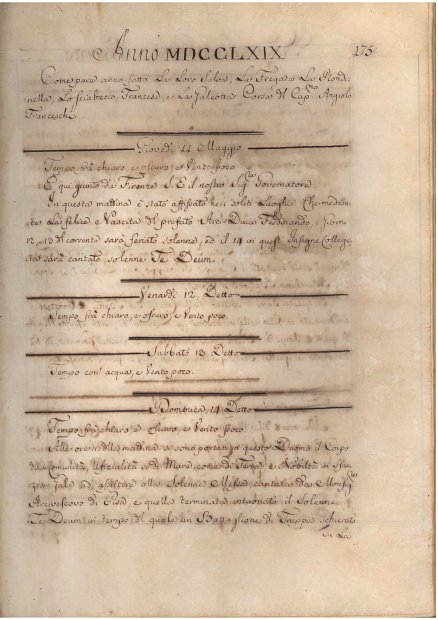 Anno MDCCLXIX
175
Come pure anno fatto La Loro Salva, La Fregata La Rondi-
nella, Lo Sciabecco Francese, e La Galeotta Corsa del Cap.no Angiolo
Franceschi
Giovedì 11 Maggio
Tempo frà chiaro, e oscuro, e Vento poco
È qui giunto da Firenze S. E. il nostro Sig.re Governatore.
In questa mattina è stato affissato nei soliti Luoghi Che median-
te La felice Nascita del prefato Arci-Duca Ferdinando, i giorni
12, e 13 del corrente sarà feriato solenne, ed il 14 in quest' Insigne Collegia-
ta sarà cantato solenne Te Deum.
Venardì 12 Detto
Tempo frà chiaro, e oscuro, e Vento poco.
Sabbato 13 Detto
Tempo con acqua, e Vento poco.
Domenica 14 Detto
Tempo frà chiaro, ed oscuro, e Vento poco.
Alle ore della mattina si sono portati in questo Duomo il Corpo
della Comunità, Ufizialità sì di Mare, come di Terra, e Nobiltà in sfar-
zosa gala ad assistere alla Solenne Messa cantata da Monsig.re
Arcivescovo di Pisa, e quella terminata intuonato il Solenne
Te Deum, in tempo del quale un Battaglione di Truppa schierato
su La